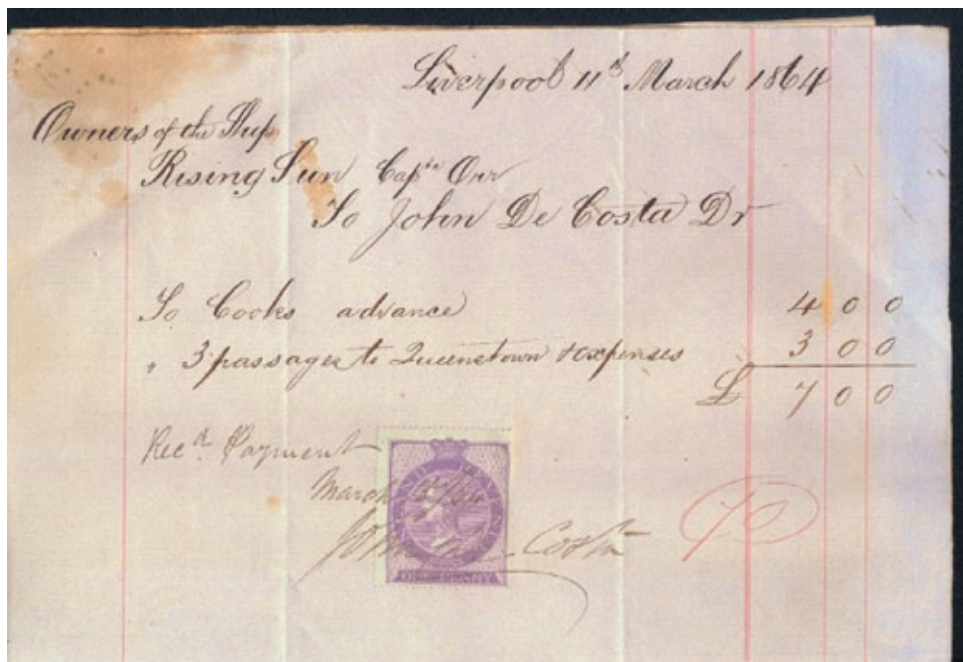 Liverpool 11th March 1864
Owners of the Ship
Rising Sun Captn Orr
To John De Costa Dr
To Cooks advance 4 0 0
" 3 passages to Queenstown & expenses 3 0 0
£ 7 0 0
Recd Payment
March /64
John De Costa
INLAND REVENUE
ONE PENNY